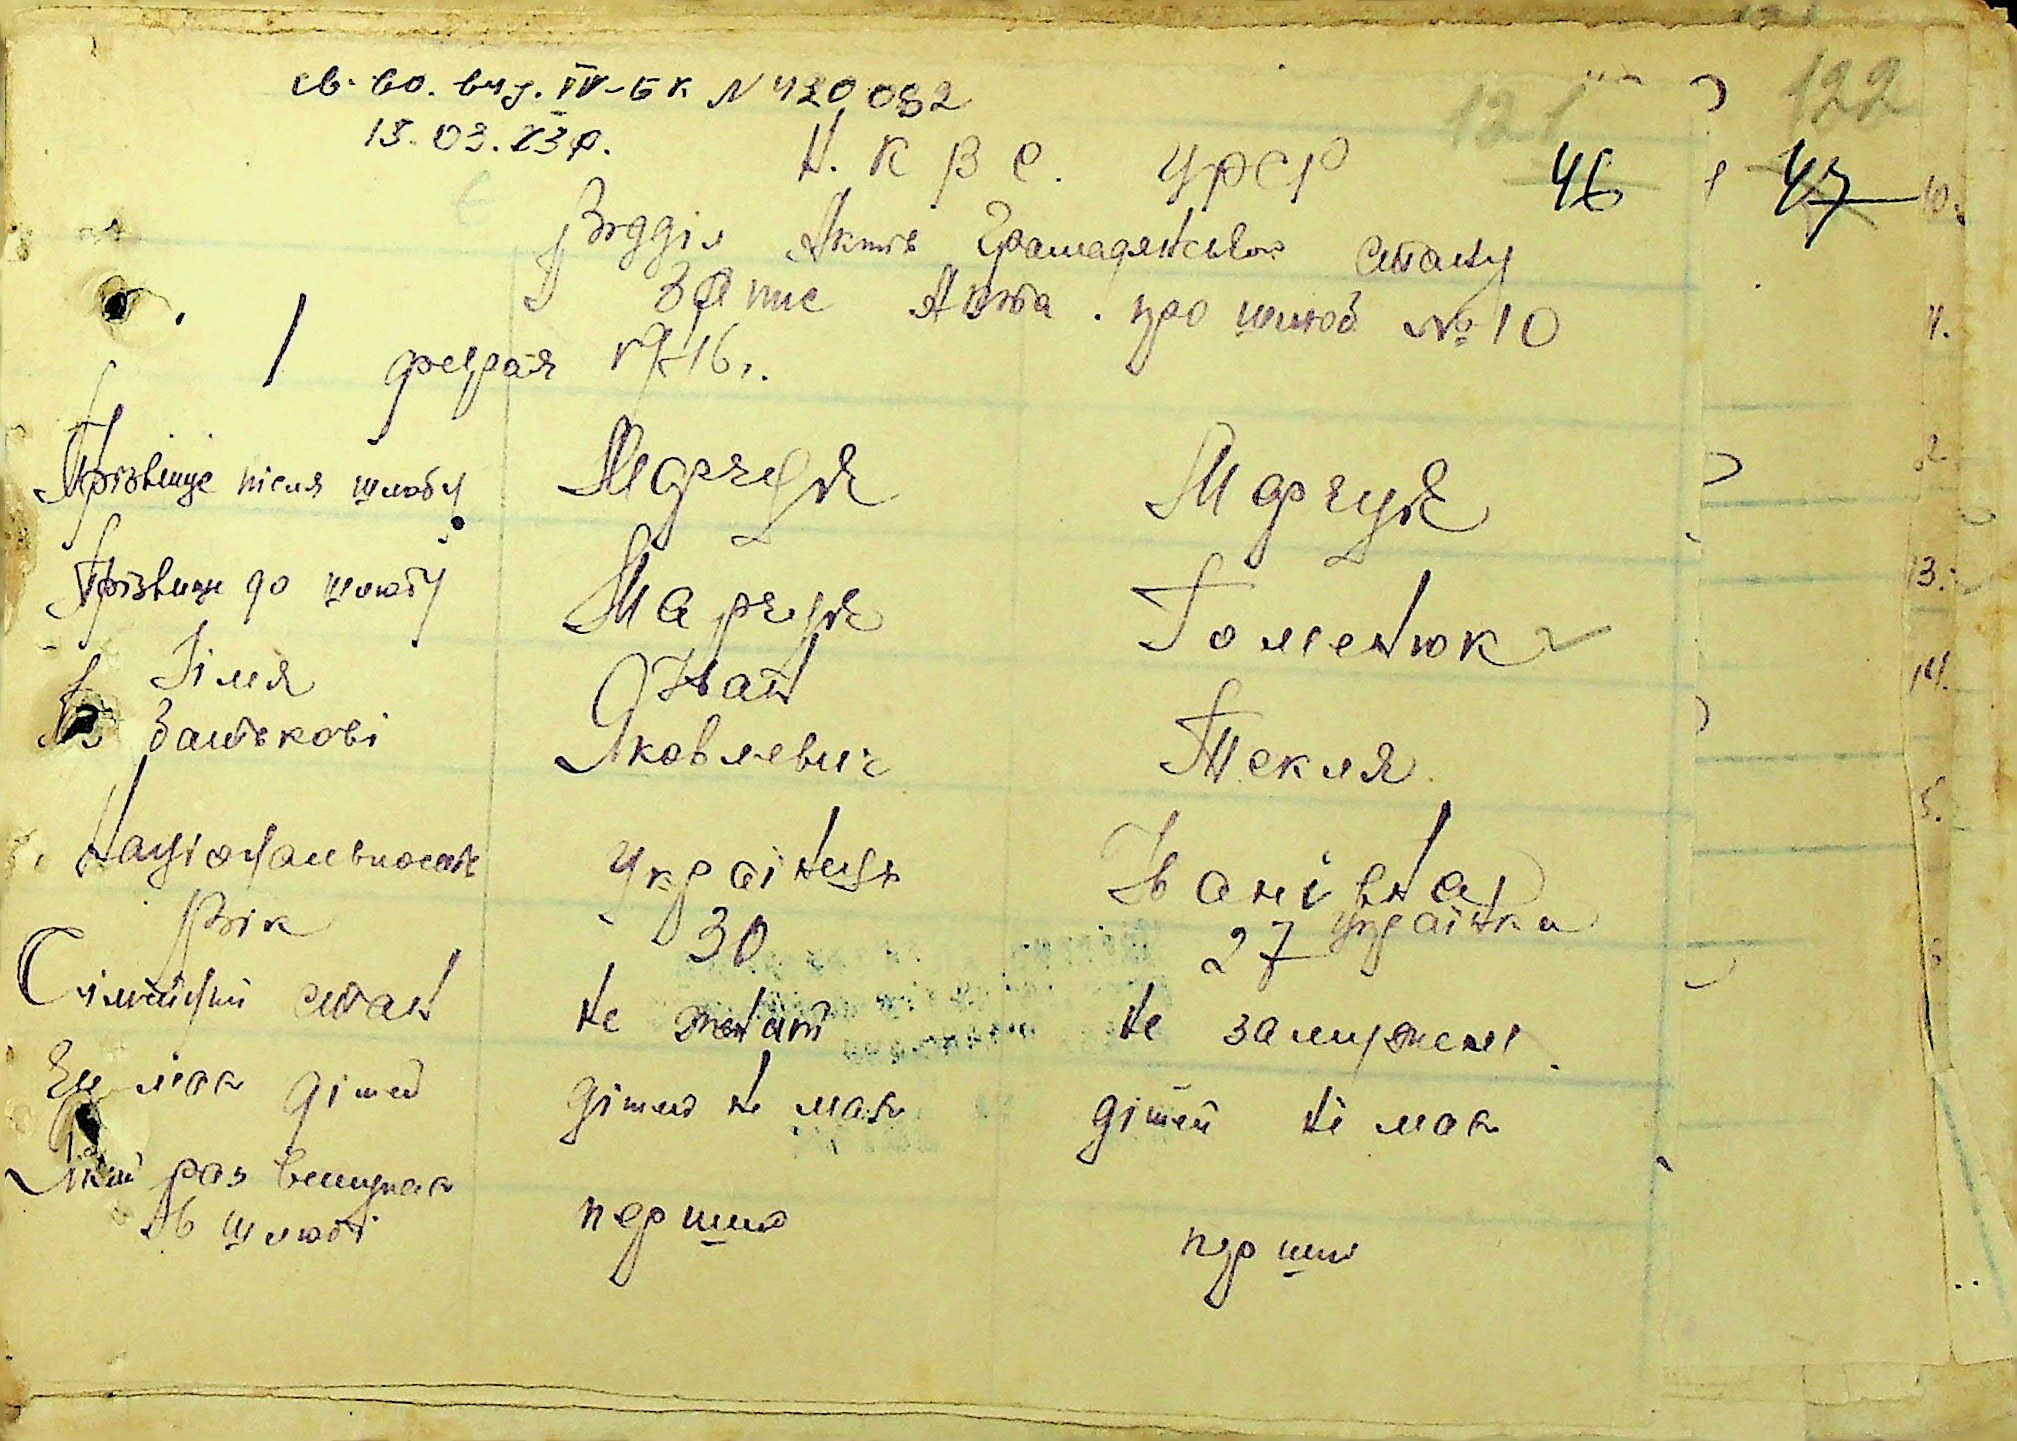 св-во. выд. IV-БК N 420082
121 122
Н. К В С. УРСР 46 47
Відділ Актів Громадянського стану
Запис Акта про шлюб № 10
1 февраля 1946 г.
Прізвище після шлюбу Марчук Марчук
Прізвище до шлюбу Марчук Гоменюк
Імя Іван Текля
По батькові Яковлевич Іванівна
Національность Українець українка
Вік 30 27
Сімейний стан не женат не замужем
Чи має дітей дітей не має дітей не має
Який раз вступає перший перший
в шлюбі